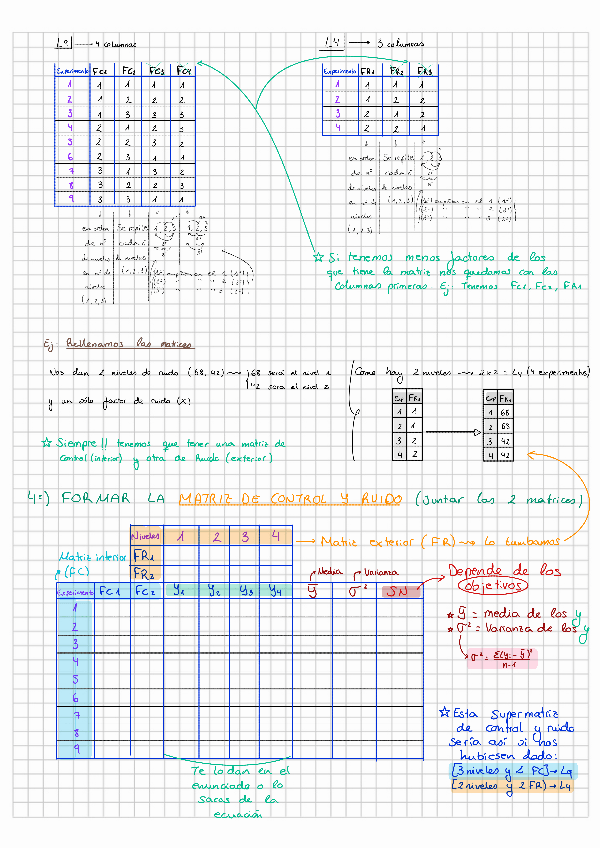 L9 → 4 columnas
L4 → 3 columnas
Experimento FC1 FC2 FC3 FC4
1 1 1 1 1
2 1 2 2 2
3 1 3 3 3
4 2 1 2 3
5 2 2 3
6 2 3 1 1
7 3 1 3 2
8 3 2 2 3
9 3 3 1 1
Experimento FR1 FR2 FR3
1 1 1 1
2 1 2 2
3 2 1 2
4 2 2 1
en orden Se repite
de nº cada
de niveles
(1,2,3)
en orden Se repite
de nº cada
de niveles
(1,2,3)
☆ Si tenemos menos factores de los
que tiene la matriz nos quedamos con las
columnas primeras. Ej: Tenemos FC1, FC2, FR1
Ej: Rellenamos las matrices
Nos dan 2 niveles de ruido (68, 42) → 68 será el nivel 1
42 será el nivel 2
y un sólo factor de ruido (X)
Como hay 2 niveles → 2x2 = L4 (4 experimentos)
Exp FR1
1 1
2 1
3 2
4 2
Exp FR1
1 68
2 68
3 42
4 42
☆ Siempre!! tenemos que tener una matriz de
control (interior) y otra de Ruido (exterior)
4º) FORMAR LA MATRIZ DE CONTROL Y RUIDO (Juntar las 2 matrices)
Niveles 1 2 3 4
→ Matriz exterior (FR) → La tumbamos
FR1
FR2
Matriz interior
(FC)
Media Varianza
Experimento FC1 FC2 Y1 Y2 Y3 Y4 ȳ σ² SN
1
2
3
4
5
6
7
8
9
Te lo dan en el
enunciado o lo
sacas de la
ecuación
Depende de los
objetivos
★ ȳ = media de los y
★ σ² = Varianza de los y
σ² = Σ(yi - ȳ)² / n-1
☆ Esta supermatriz
de control y ruido
sería así si nos
hubiesen dado:
[3 niveles y 2 FC] → L9
[2 niveles y 2 FR) → L4